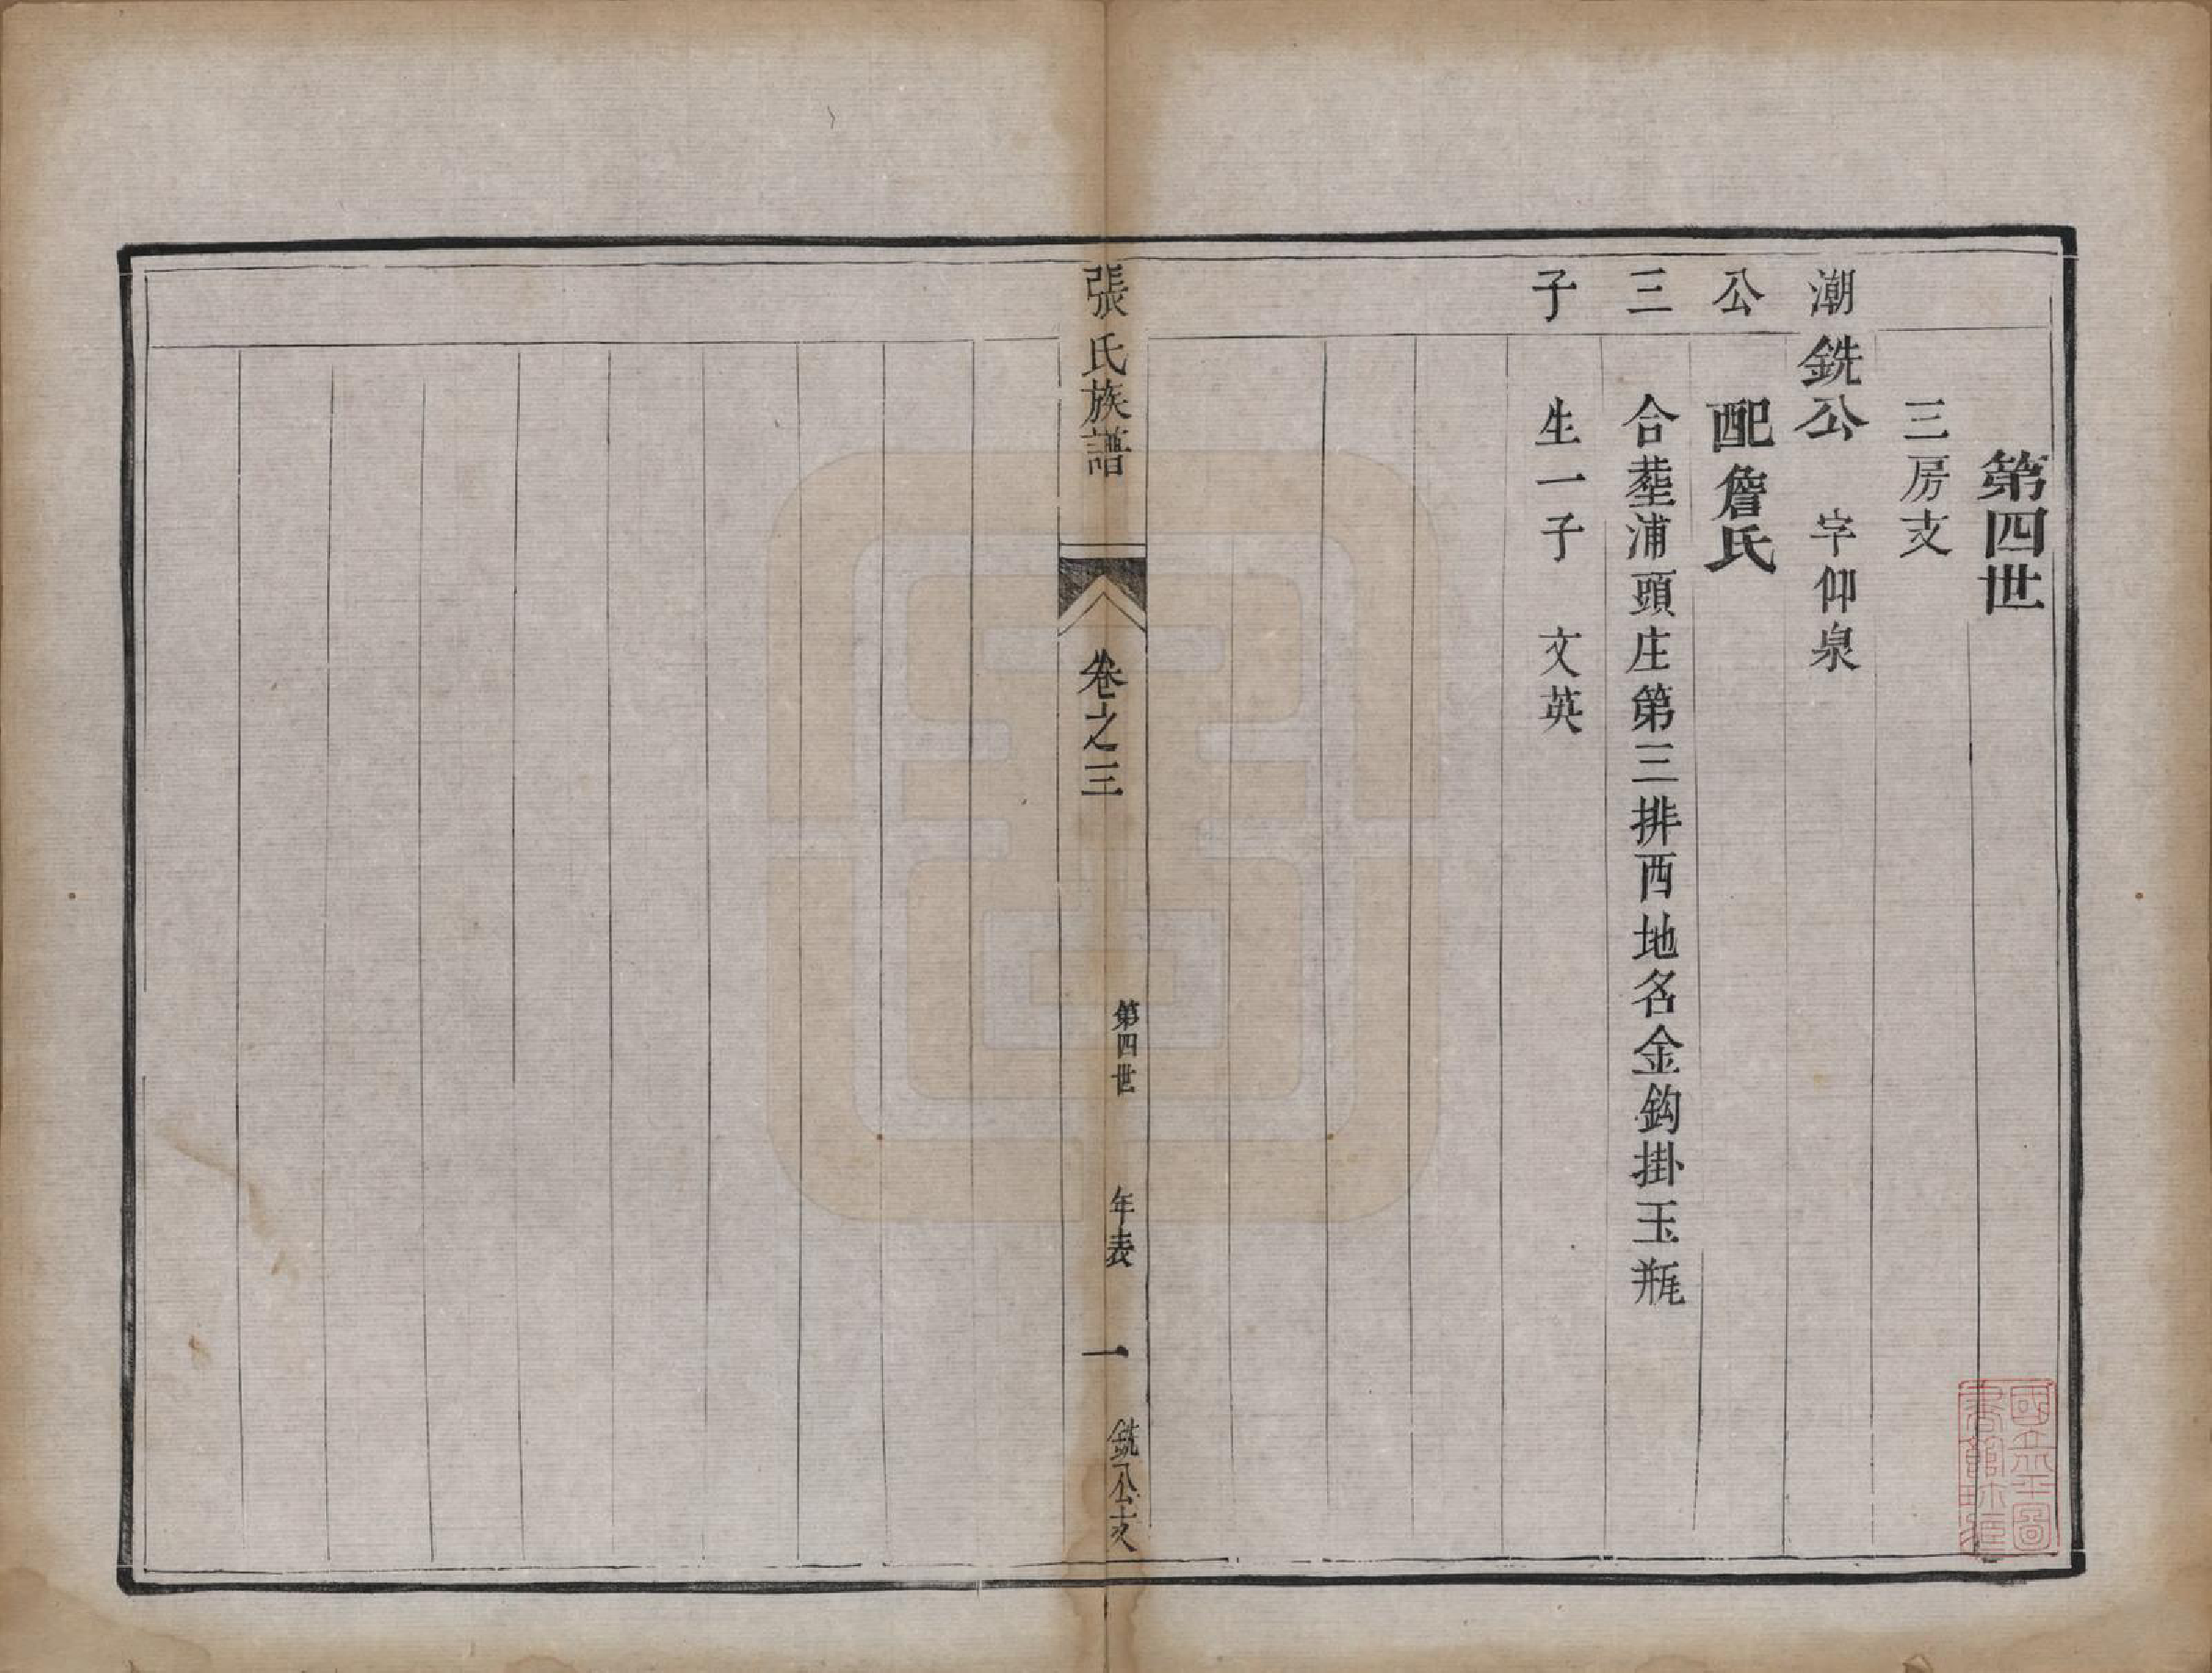 第四世
三房支
潮 銑公 字仰泉
公 配詹氏
三 合塟浦頭庄第三排西地名金鈎掛玉瓶
子 生一子 文英
張氏族譜 卷之三 第四世 年表 一 銑公支
國立北平圖
書館收藏